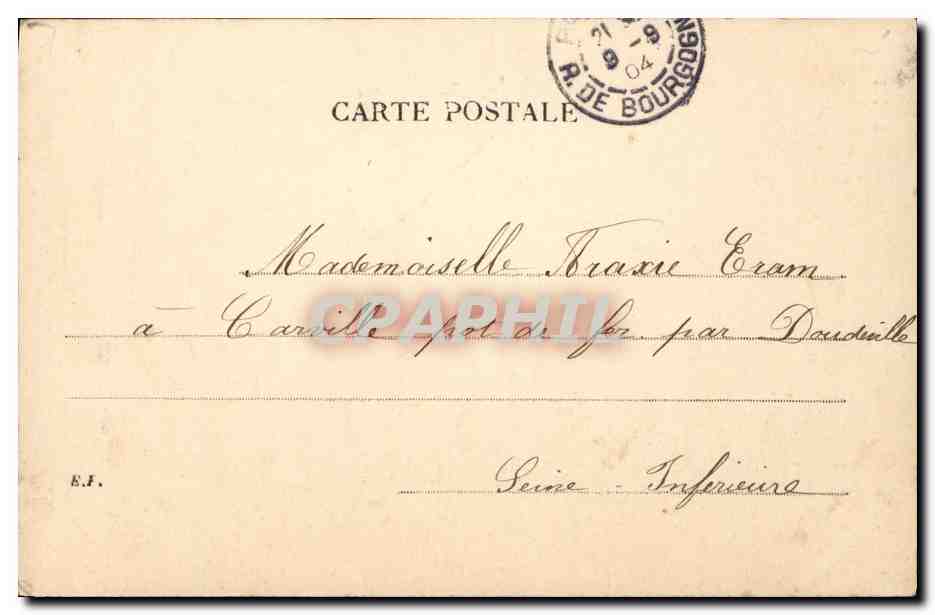 21 9
9 04
R. DE BOURGOGN
CARTE POSTALE
Mademoiselle Araxie Eram
à Carville pot de fer par Doudeville
CPAPHIL
E.F.
Seine - Inférieure